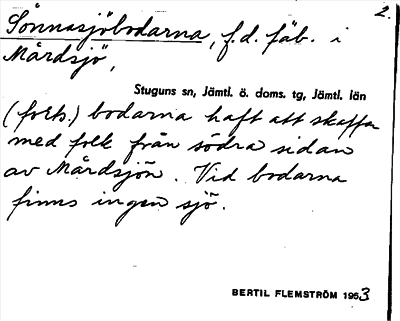 2.
Sönnasjöbodarna, f.d. fäb. i
Mårdsjö,
Stuguns sn, Jämtl. ö. doms. tg, Jämtl. län
(forts.) bodarna haft att skaffa
med folk från södra sidan
av Mårdsjön. Vid bodarna
finns ingen sjö.
BERTIL FLEMSTRÖM 1953